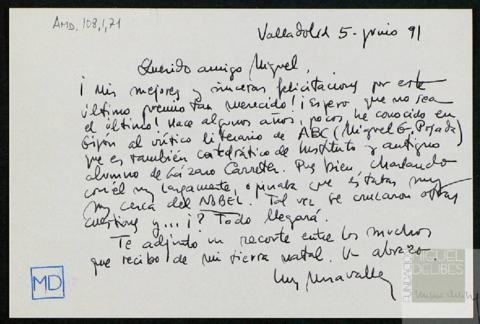 AMD, 108,1,71
Valladolid 5-junio 91
Querido amigo Miguel,
¡Mis mejores y sinceras felicitaciones por este
último premio tan merecido! ¡Espero que no sea
el último! Hace algunos años, pocos, he conocido en
Gijón al crítico literario de ABC (Miguel G. Posada)
que es también catedrático de Instituto y antiguo
alumno de Lázaro Carreter. Pues bien charlando
con él muy largamente, opinaba que estabas muy
muy cerca del NOBEL. Tal vez se cruzaron otras
cuestiones y...¡? Todo llegará.
Te adjunto un recorte entre los muchos
que recibo de mi tierra natal. Un abrazo
MD
FUNDACIÓN
MIGUEL
DELIBES